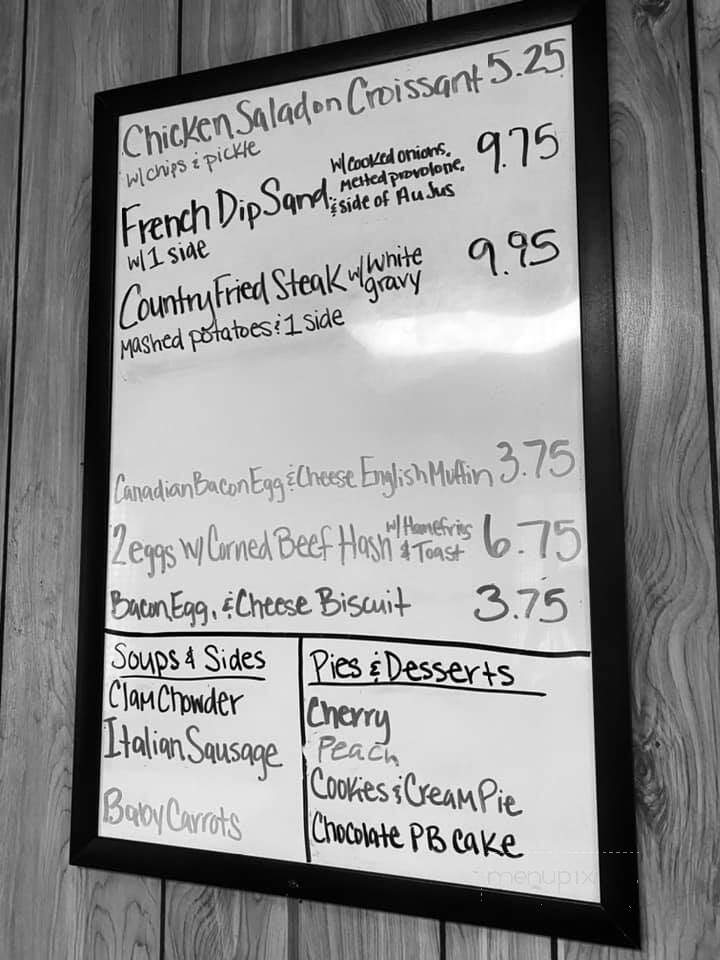 Chicken Salad on Croissant 5.25
w/ chips & pickle
French Dip Sand. w/ cooked onions, melted provolone, & side of Au Jus 9.75
w/ 1 side
Country Fried Steak w/ White gravy 9.95
Mashed potatoes & 1 side
Canadian Bacon Egg & Cheese English Muffin 3.75
2 eggs w/ Corned Beef Hash w/ Homefries & Toast 6.75
Bacon Egg, & Cheese Biscuit 3.75
Soups & Sides
Clam Chowder
Italian Sausage
Baby Carrots
Pies & Desserts
Cherry
Peach
Cookies & Cream Pie
Chocolate PB Cake
menupix